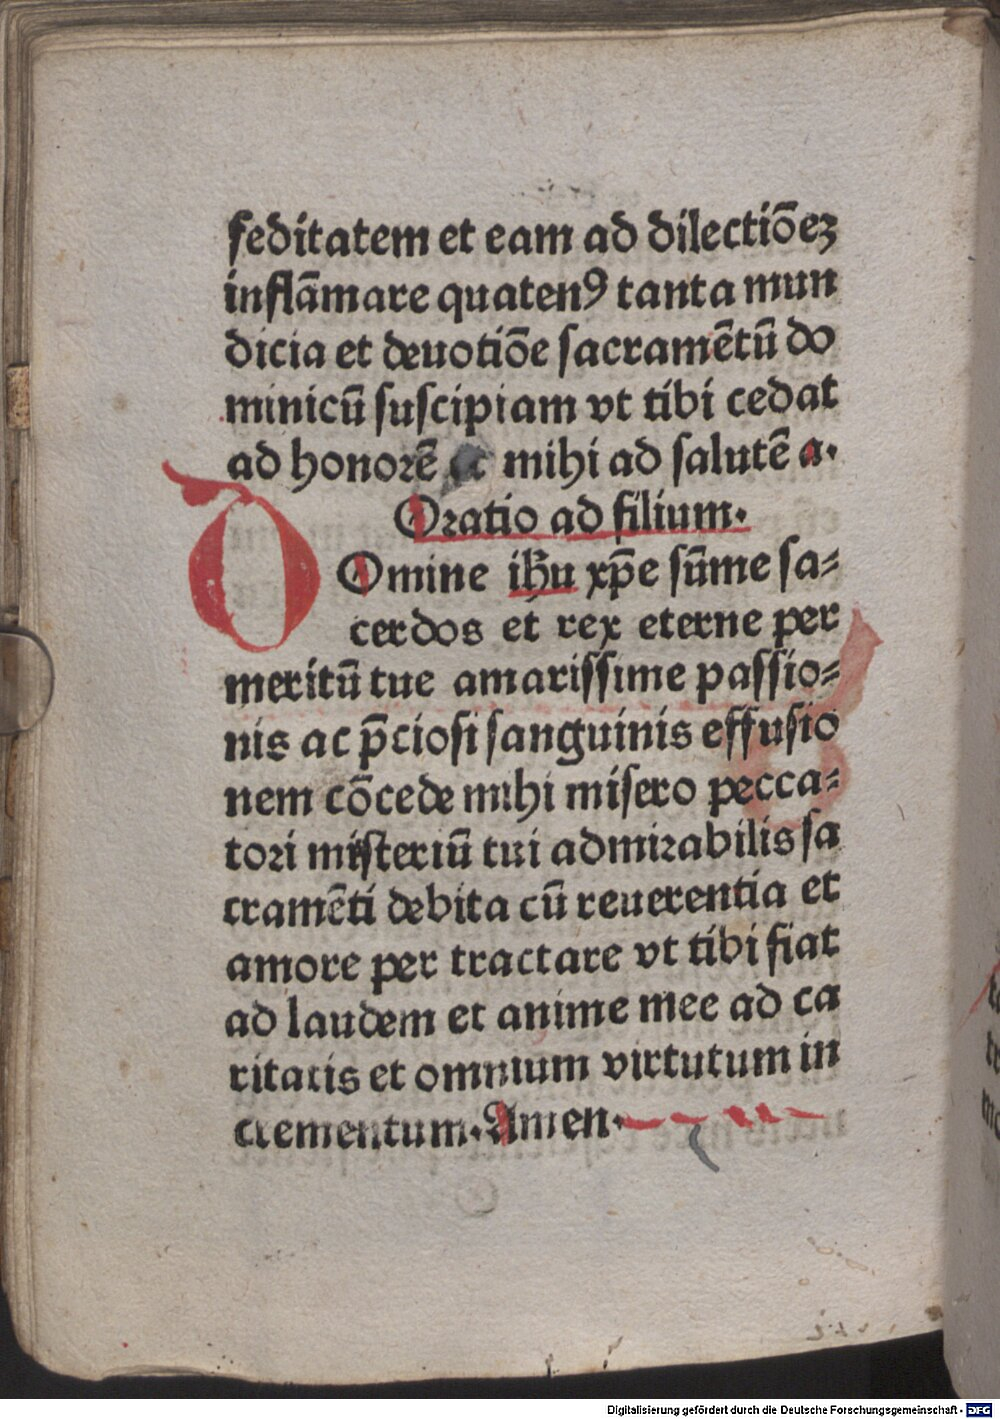 feditatem et eam ad dilectiōeꝫ
inflāmare quatenꝰ tanta mun
dicia et deuotiōe sacramētū do
minicū suscipiam vt tibi cedat
ad honorē et mihi ad salutē a.
Oratio ad filium.
DOmine ihū xp̄e sūme sa⸗
cerdos et rex eterne per
meritū tue amarissime passio⸗
nis ac p̄ciosi sanguinis effusio
nem cōcede mihi misero pecca⸗
tori misteriū tui admirabilis sa
cramēti debita cū reuerentia et
amore per tractare vt tibi fiat
ad laudem et anime mee ad ca
ritatis et omnium virtutum in
crementum. Amen.
Digitalisierung gefördert durch die Deutsche Forschungsgemeinschaft - DFG